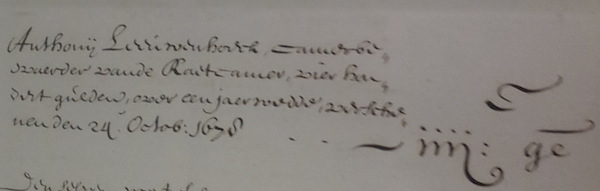 Anthonij Leeuwenhoeck, Camerbe„
waerder vande Raetcamer, vier hon„
dert gulden, over een jaer wedde, versche„
nen den 24. Octob: 1678 iiij: C ge